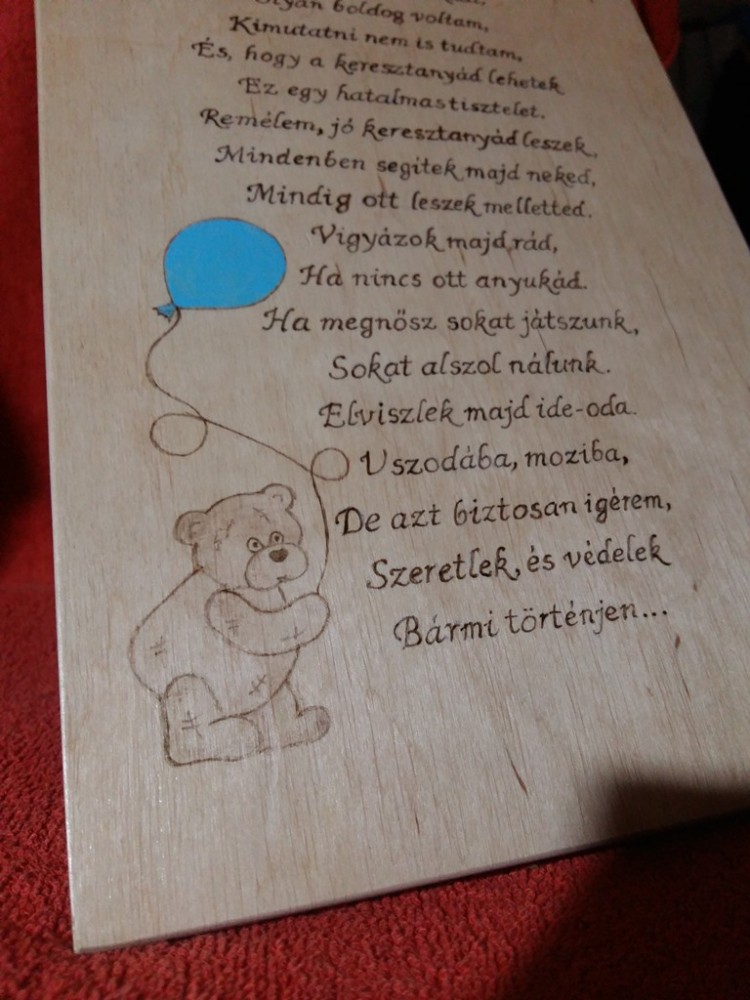 boldog voltam,
Kimutatni nem is tudtam,
És, hogy a keresztanyád lehetek
Ez egy hatalmas tisztelet.
Remélem, jó keresztanyád leszek,
Mindenben segítek majd neked,
Mindig ott leszek melletted.
Vigyázok majd rád,
Ha nincs ott anyukád.
Ha megnősz sokat játszunk,
Sokat alszol nálunk.
Elviszlek majd ide-oda.
Uszodába, moziba,
De azt biztosan igérem,
Szeretlek, és védelek
Bármi történjen...